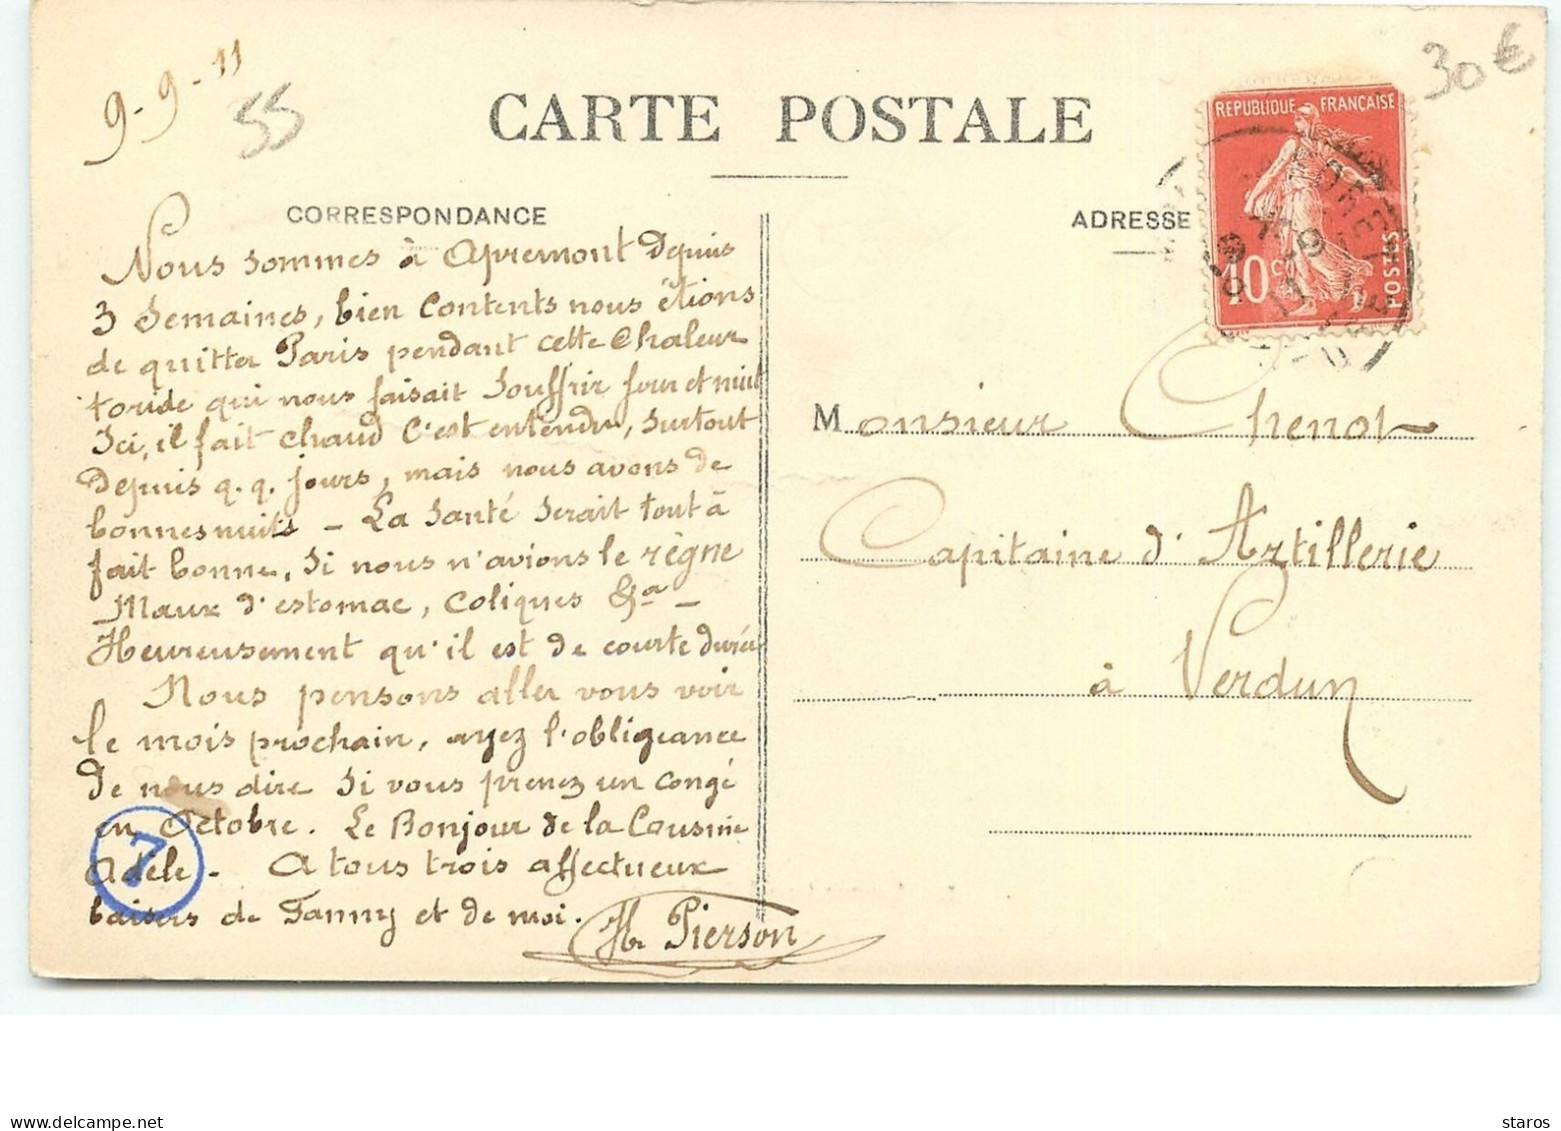 9-9-11
55
30€
CARTE POSTALE
CORRESPONDANCE
ADRESSE
REPUBLIQUE FRANÇAISE
10c
POSTES
Nous sommes à Apremont Depuis
3 Semaines, bien Contents nous étions
de quitter Paris pendant cette Chaleur
torride qui nous faisait Souffrir jour et nuit
Ici, il fait chaud C'est entendu, Surtout
Depuis q.q. jours, mais nous avons de
bonnes nuits - La Santé Serait tout à
fait bonne, Si nous n'avions le règne
Maux d'estomac, Coliques &a -
Heureusement qu'il est de courte durée
Nous pensons aller vous voir
le mois prochain, ayez l'obligeance
De nous dire Si vous prenez un congé
en Octobre. Le Bonjour de la Cousine
Adèle - A tous trois affectueux
baisers de Fanny et de moi.
H. Pierson
7
Monsieur Chenot
Capitaine d'Artillerie
à Verdun
delcampe.net
staros